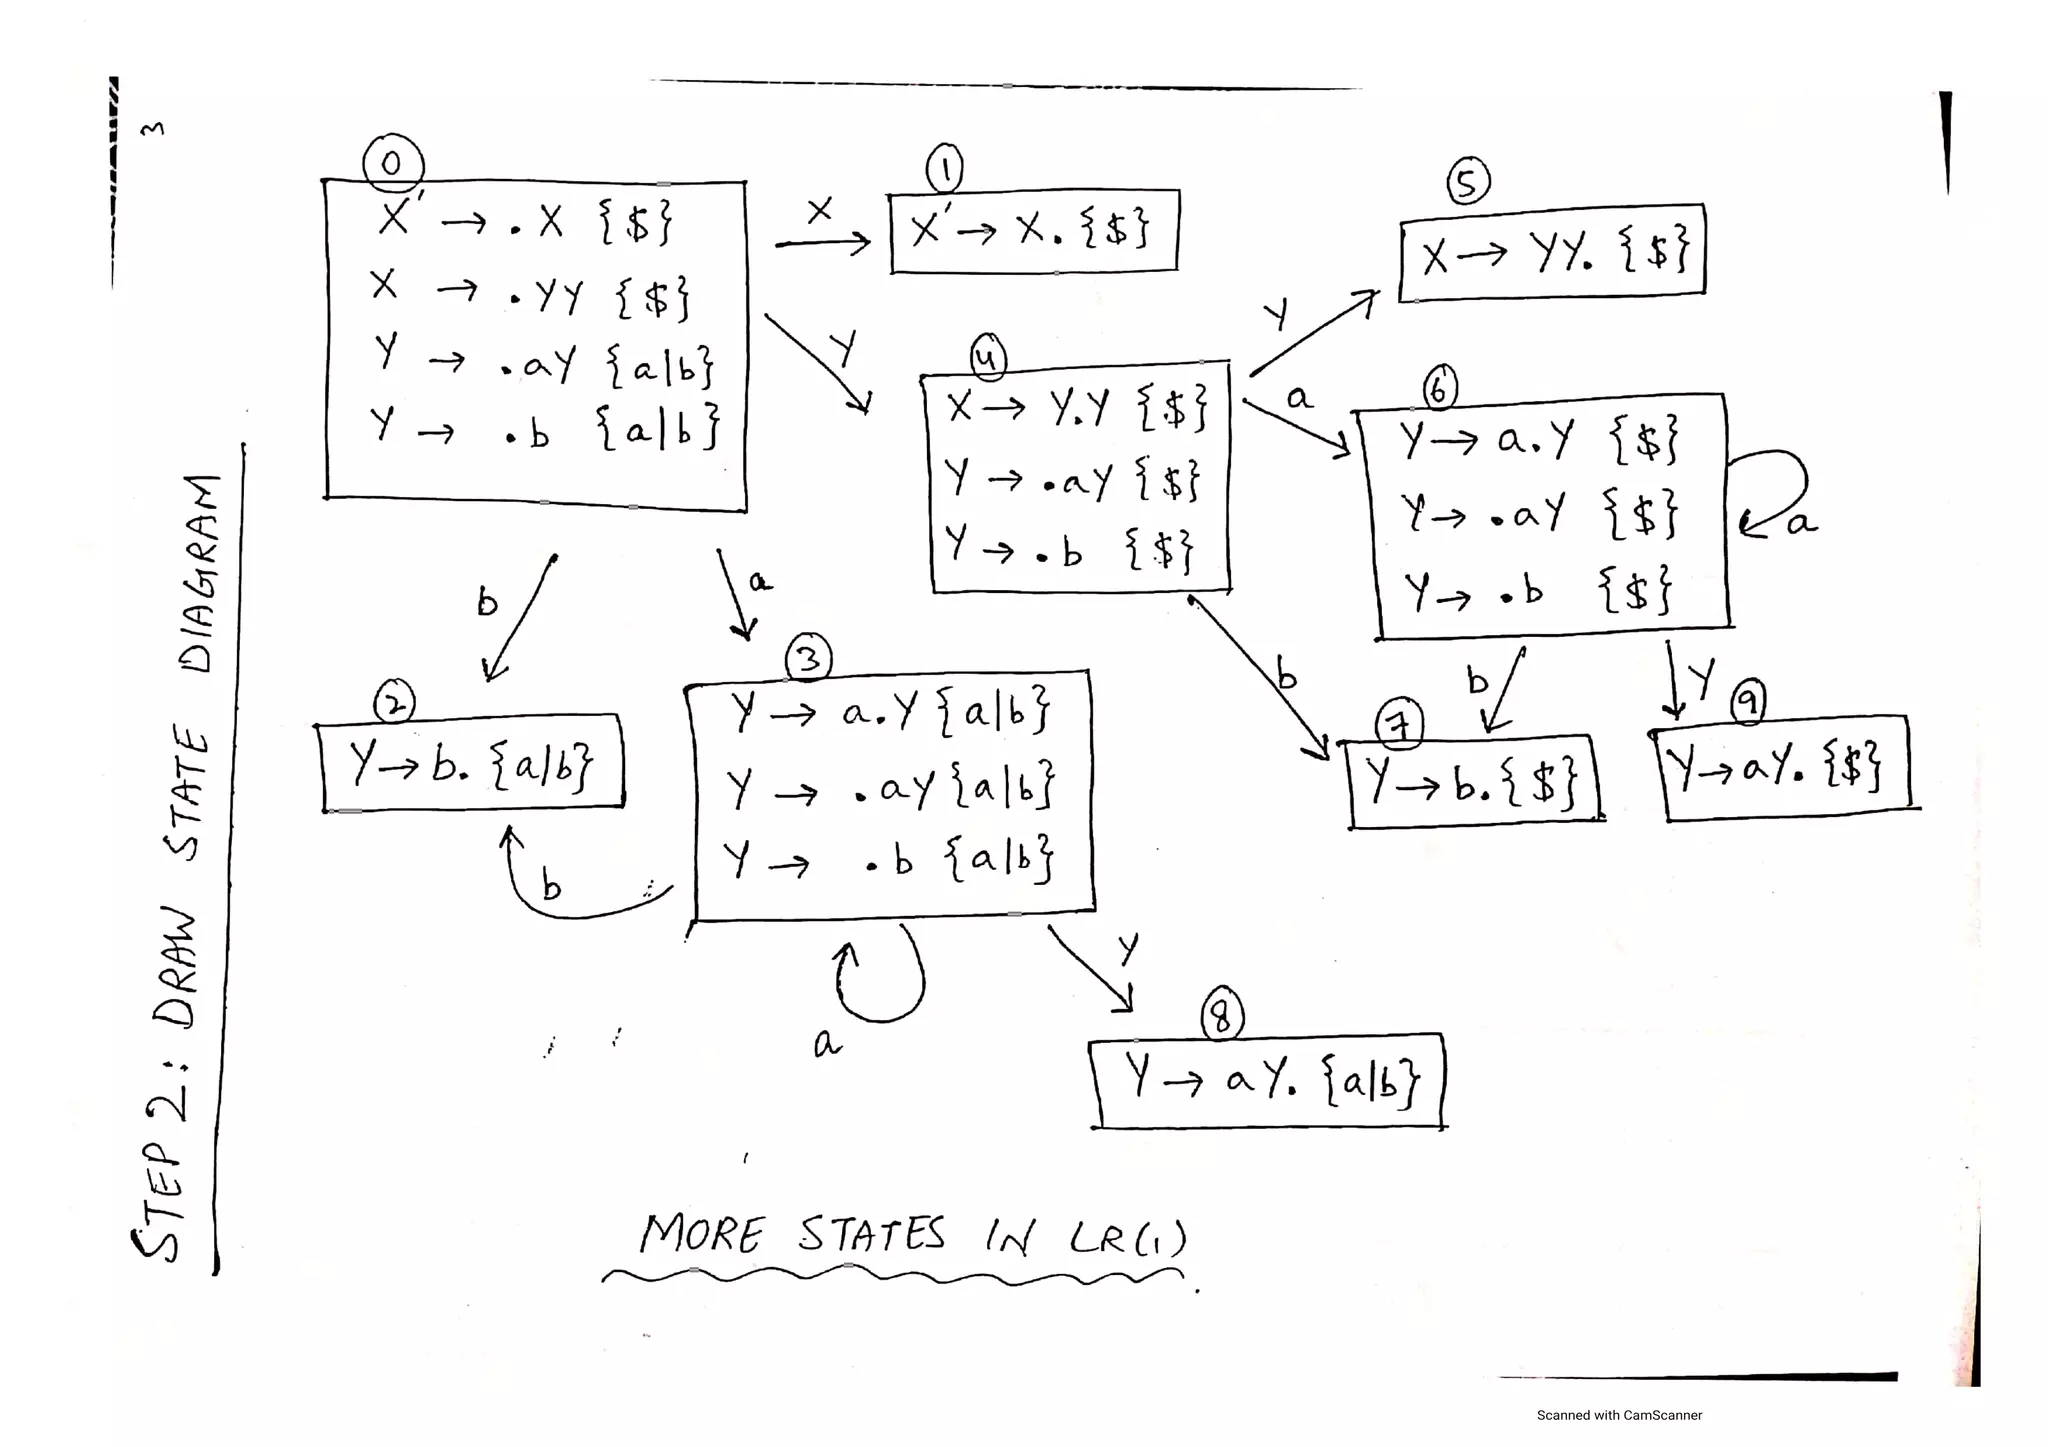 3
STEP 2: DRAW STATE DIAGRAM
0
X' → . X {$}
X → . YY {$}
Y → . aY {a|b}
Y → . b {a|b}
X
1
X' → X. {$}
Y
4
X → Y.Y {$}
Y → .aY {$}
Y → .b {$}
Y
5
X → YY. {$}
a
6
Y → a.Y {$}
Y → .aY {$}
Y → .b {$}
a
b
a
b
b
Y
2
Y → b. {a|b}
3
Y → a.Y {a|b}
Y → .aY {a|b}
Y → .b {a|b}
7
Y → b. {$}
9
Y → aY. {$}
b
a
Y
8
Y → aY. {a|b}
MORE STATES IN LR(1).
Scanned with CamScanner